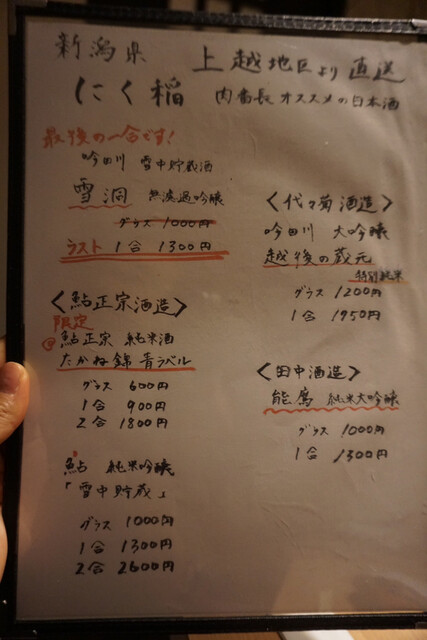 新潟県 上越地区より直送
にく稲 肉番長オススメの日本酒
最後の一合です!
吟田川 雪中貯蔵酒
雪洞 無濾過吟醸
グラス 1000円
ラスト 1合 1300円
〈鮎正宗酒造〉
限定
鮎正宗 純米酒
たかね錦 青ラベル
グラス 600円
1合 900円
2合 1800円
鮎 純米吟醸
「雪中貯蔵」
グラス 1000円
1合 1300円
2合 2600円
〈代々菊酒造〉
吟田川 大吟醸
越後の蔵元
特別純米
グラス 1200円
1合 1950円
〈田中酒造〉
能鷹 純米大吟醸
グラス 1000円
1合 1300円